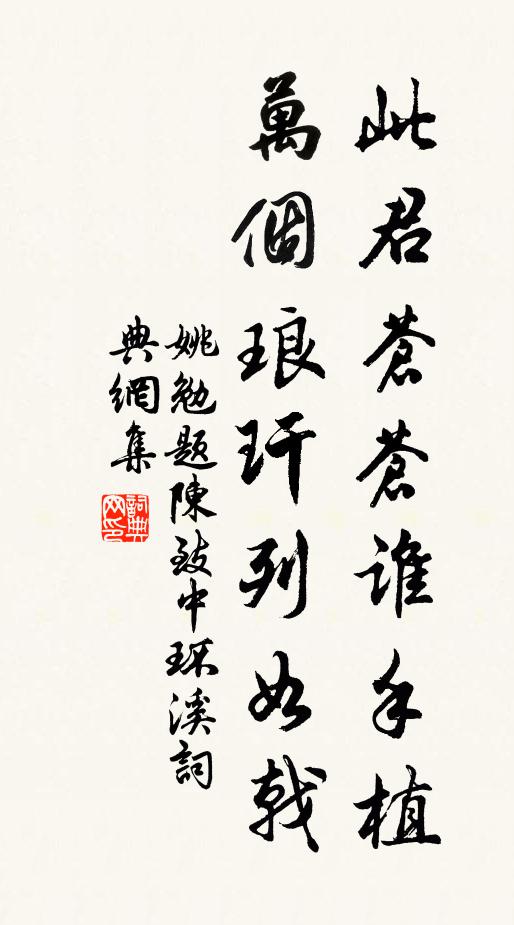 此君蒼蒼誰手植
萬個琅玕列如戟
姚勉題陳致中環溪詞
典網集
詞典網印